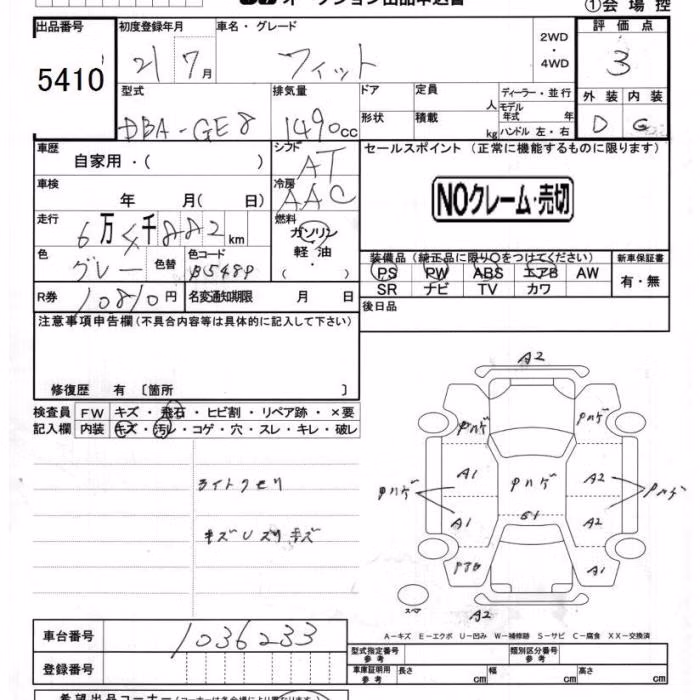 オークション出品申込書
①会場控
出品番号 5410
初度登録年月 21 7月
車名・グレード フィット
2WD・4WD
評価点 3
外装 D 内装
型式 DBA-GE8
排気量 1490cc
ドア
定員 人
形状
積載 kg
ディーラー・並行
モデル年式 年
ハンドル 左・右
車歴 自家用・( )
シフト AT
セールスポイント (正常に機能するものに限ります)
NOクレーム・売切
車検 年 月( 日)
冷房 AAC
走行 6万 千882km
燃料 ガソリン 軽油 ( ・ )
色 グレー 色替
色コード B5489
R券 10810円
名変通知期限 月 日
装備品 (純正品に限り○をつけてください)
PS PW ABS エアB AW
SR ナビ TV カワ
新車保証書 有・無
後日品
注意事項申告欄 (不具合内容等は具体的に記入して下さい)
修復歴 有 〔箇所 〕
検査員 FW キズ・飛石・ヒビ割・リペア跡・×要
記入欄 内装 キズ・汚レ・コゲ・穴・スレ・キレ・破レ
ライトクモリ
キズUズリキズ
A2
φハゲ φハゲ
A1 φハゲ A2
φハゲ φハゲ
A1 S1 A2
A1
スペア
A2
A-キズ E-エクボ U-凹み W-補修跡 S-サビ C-腐食 XX-交換済
車台番号 1036233
登録番号
型式指定番号 参考
類別区分番号 参考
車庫証明用 参考 長さ cm 幅 cm 高さ cm
希望出品コーナー